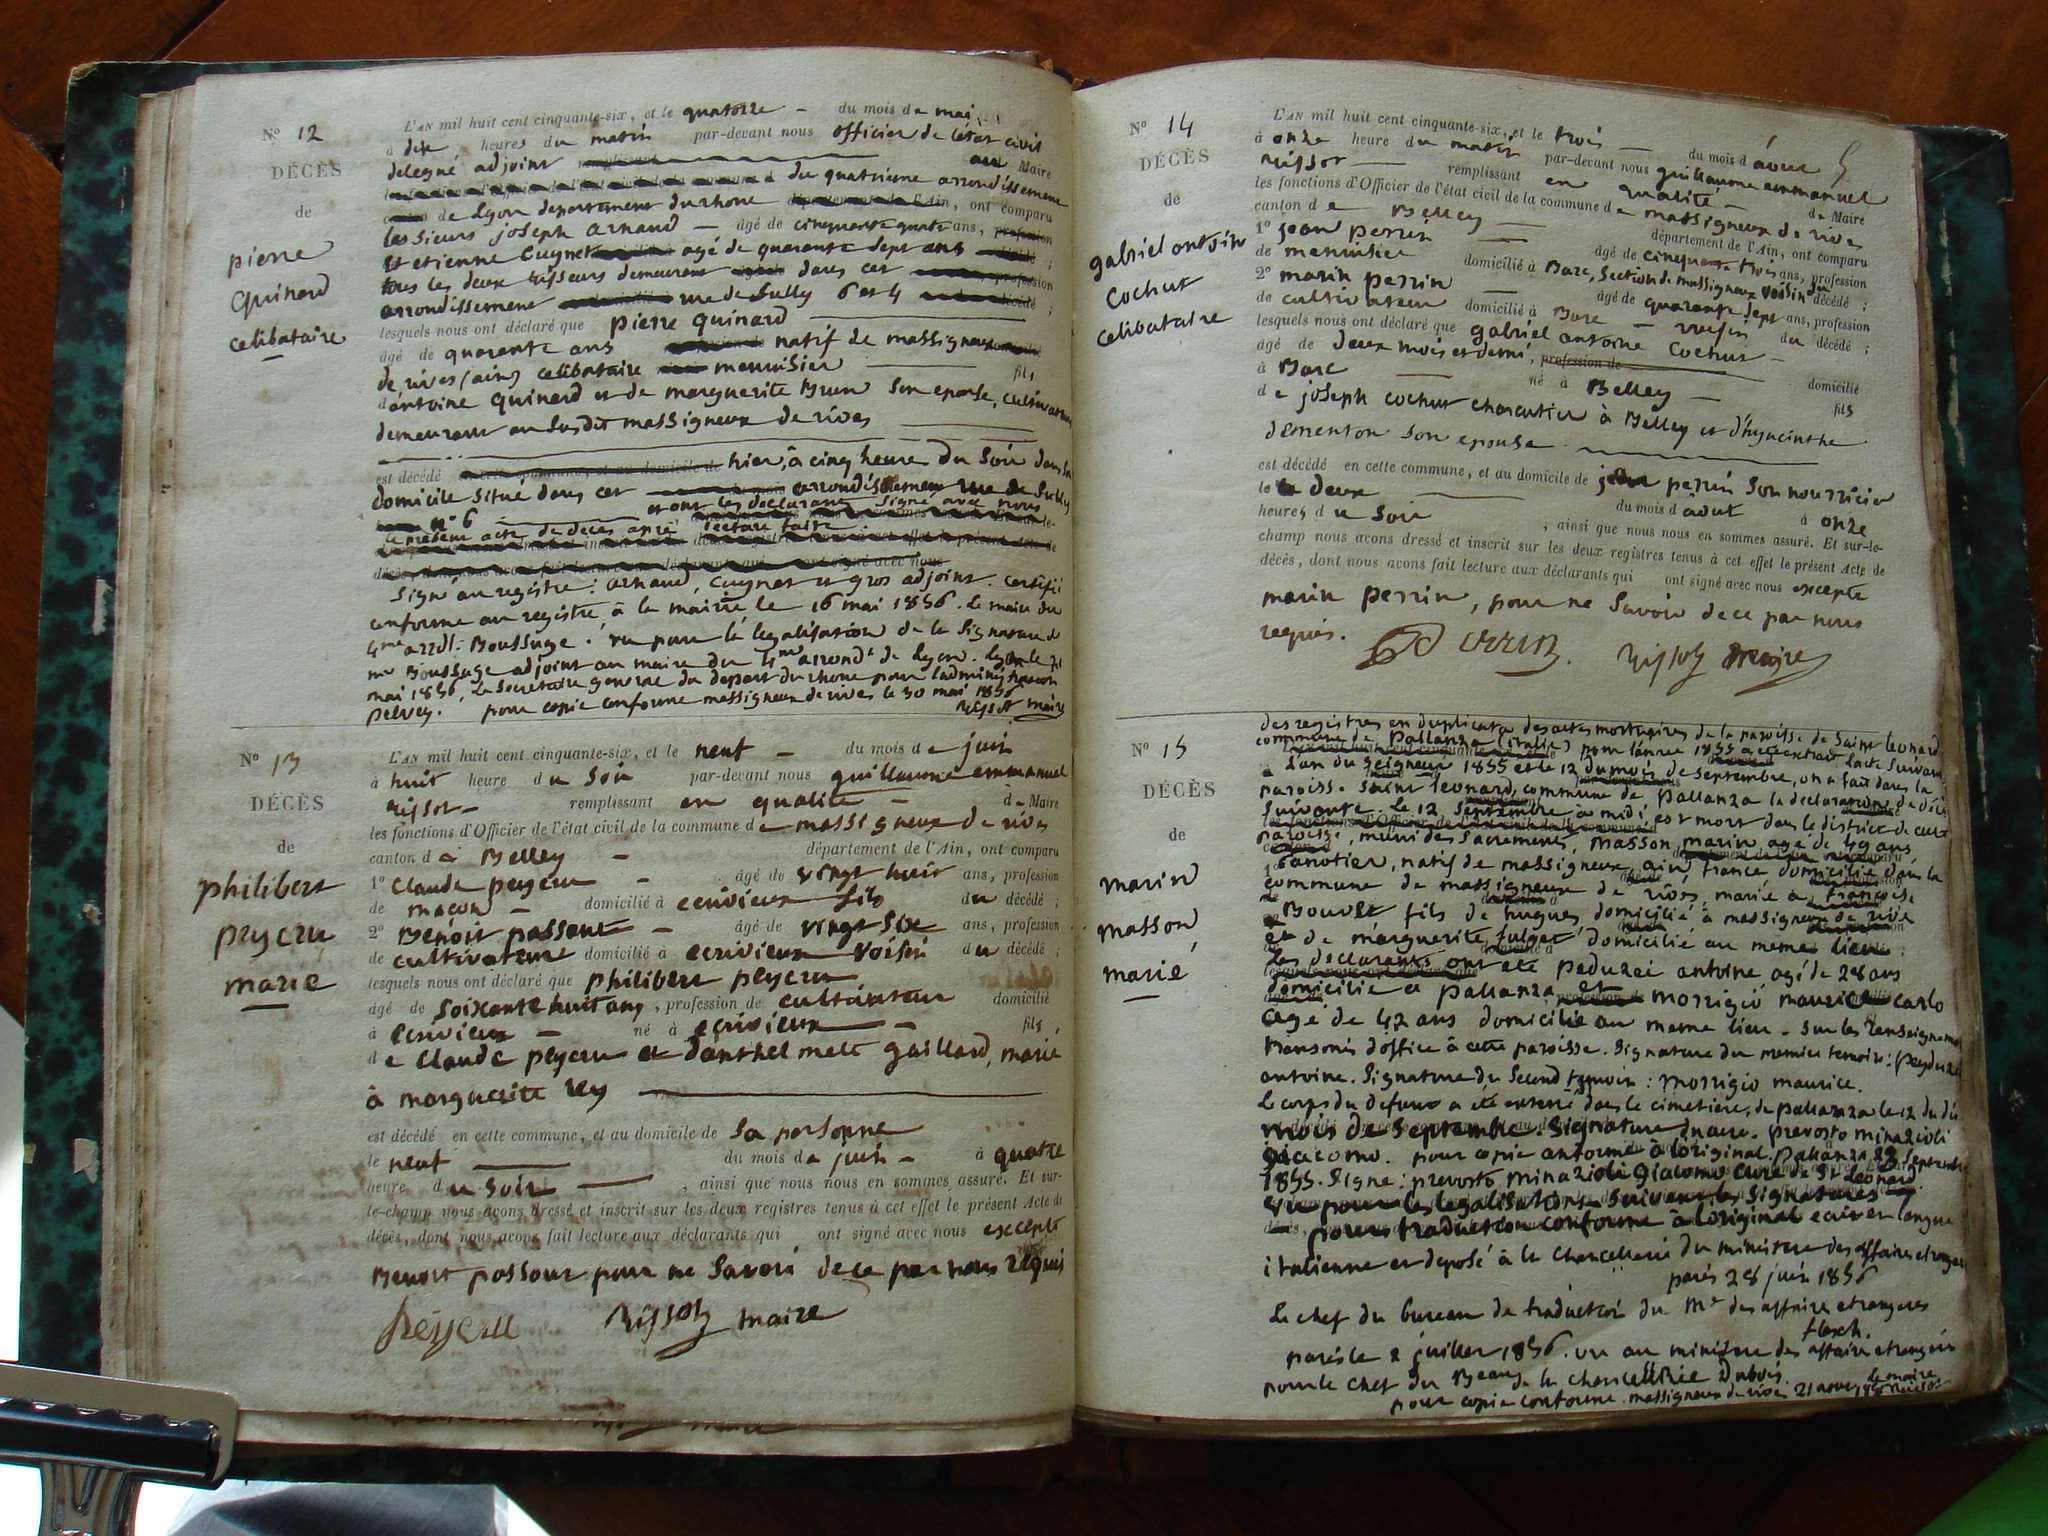 N° 12
DÉCÈS
de
pierre
Quinard
celibataire
L'AN mil huit cent cinquante-six, et le quatorze - du mois de mai
à dix heures du matin par-devant nous officier de letat civil
delegué adjoint au Maire
du quatrieme arrondissement
de Lyon departement du rhone, ont comparu
les sieurs joseph arnaud - âgé de cinquante quatre ans,
et etienne Cuynet agé de quarante sept ans
tous les deux tisseurs demeurent dans cet
arrondissement rue de Sully 6 et 4
lesquels nous ont déclaré que pierre Quinard
âgé de quarante ans natif de massigneux
de rives (ain) celibataire menuisier fils
d'antoine Quinard et de marguerite Brun son epouse, cultivateurs
demeurant au susdit massigneux de rives
est décédé hier, à cinq heure du Soir dans la
domicile situé dans cet arrondissement rue de Sully
n° 6 et ont les declarants signé avec nous
le present acte de deces après lecture faite.
Signé au registre: arnaud, Cuynet et gros adjoint. Certifié
conforme au registre à la mairie le 16 mai 1856. Le maire du
4me arrdt. Boussuge. vu pour la legalisation de la Signature de
mr Boussuge adjoint au maire du 4me arrondt de Lyon. Lyon le 21
mai 1856 La Secretaire general du depart du rhone pour l'administration
Delvey. pour copie conforme massigneux de rives le 30 mai 1856
Rissot maire
N° 13
DÉCÈS
de
philibert
peyeru
marie
L'AN mil huit cent cinquante-six, et le neuf - du mois de juin
à huit heure du Soir par-devant nous guillaume emmanuel
Rissot - remplissant en qualité - de Maire
les fonctions d'Officier de l'état civil de la commune de massigneux de rives
canton de Belley - département de l'Ain, ont comparu
1° Claude peyeru - âgé de vingt huit ans, profession
de macon - domicilié à ecrivieux fils du décédé ;
2° Benoit passout - âgé de vingt six ans, profession
de cultivateur domicilié à ecrivieux voisin du décédé ;
lesquels nous ont déclaré que philibert peyeru
âgé de soixante huit ans, profession de cultivateur domicilié
à Ecrivieux - né à ecrivieux - fils
de Claude peyeru et d'anthelmete gaillard, marie
à marguerite Rey
est décédé en cette commune, et au domicile de Sa personne
le neuf du mois de juin - à quatre
heure du Soir, ainsi que nous nous en sommes assuré. Et sur-
le-champ nous avons dressé et inscrit sur les deux registres tenus à cet effet le présent Acte de
décès, dont nous avons fait lecture aux déclarants qui ont signé avec nous excepté
Benoit passout pour ne savoir de ce par nous requis
Peyeru Rissot maire
N° 14
DÉCÈS
de
gabriel antoin
Cochut
celibataire
5
L'AN mil huit cent cinquante-six, et le trois - du mois d'aout
à onze heure du matin par-devant nous guillaume emmanuel
Rissot - remplissant en qualité - de Maire
les fonctions d'Officier de l'état civil de la commune de massigneux de rives
canton de Belley - département de l'Ain, ont comparu
1° jean perrin - âgé de cinquante trois ans, profession
de menuisier domicilié à Barc, Section de massigneux voisin du décédé ;
2° marin perrin - âgé de quarante sept ans, profession
de cultivateur domicilié à Barc - voisin du décédé ;
lesquels nous ont déclaré que gabriel antoine Cochut -
âgé de deux mois et demi, profession de domicilié
à Barc - né à Belley - fils
de joseph cochut charcutier à Belley et d'hyacinthe
dementon son epouse
est décédé en cette commune, et au domicile de jean perrin son nourricier
le deux du mois d'aout à onze
heures du Soir, ainsi que nous nous en sommes assuré. Et sur-le-
champ nous avons dressé et inscrit sur les deux registres tenus à cet effet le présent Acte de
décès, dont nous avons fait lecture aux déclarants qui ont signé avec nous excepte
marin perrin, pour ne savoir de ce par nous
requis. Perrin. Rissot maire
N° 15
DÉCÈS
de
marin
masson
marié
des registres en duplicata des actes mortuaires de la paroisse de Saint leonard,
commune de Pallanza (italie) pour l'année 1855 a eté extrait l'acte suivant
L'an du Seigneur 1855 et le 12 du mois de septembre, on a fait dans la
paroisse Saint leonard, commune de Pallanza la declaration de décès
suivante. Le 12 Septembre à midi, est mort dans le district de cette
paroisse, muni des sacrements, masson marin agé de 49 ans
natif de massigneux, ain, france domicilié dans la
commune de massigneux de rives, marié à françoise
Bouvet fils de hugues domicilié à massigneux de rive
et de marguerite fulget domicilié au meme lieu.
Les declarants ont eté Peduzzi antoine, agé de 28 ans
domicilié a Pallanza et morrigio maurice carlo
agé de 42 ans domicilié au meme lieu. Sur les renseignemens
transmis d'office à cette paroisse. Signature du premier temoin: Peyduzzi
antoine. Signature du Second temoin: morrigio maurice.
Le corps du defunt a été enterré dans le cimetière de pallanza le 12 du dit
mois de Septembre. Signature du curé. prevosto minazioli
giacomo. pour copie conforme à l'original. Pallanza 22 septembre
1855. Signe: prevosto minazioli giacomo curé de St Leonard.
vu pour les legalisations suivent les Signatures
pour traduction conforme à l'original ecrit en langue
italienne et deposé à la chancellerie du ministere des affaires etrangeres
paris 28 juin 1856
Le chef du bureau de traduction du Mre des affaires etrangeres
flesch.
paris le 2 juillet 1856. vu au ministere des affaires etrangeres
pour le chef du Bureau de la chancellerie Dubois.
pour copie conforme. massigneux de rives 21 aout 1856 le maire Rissot